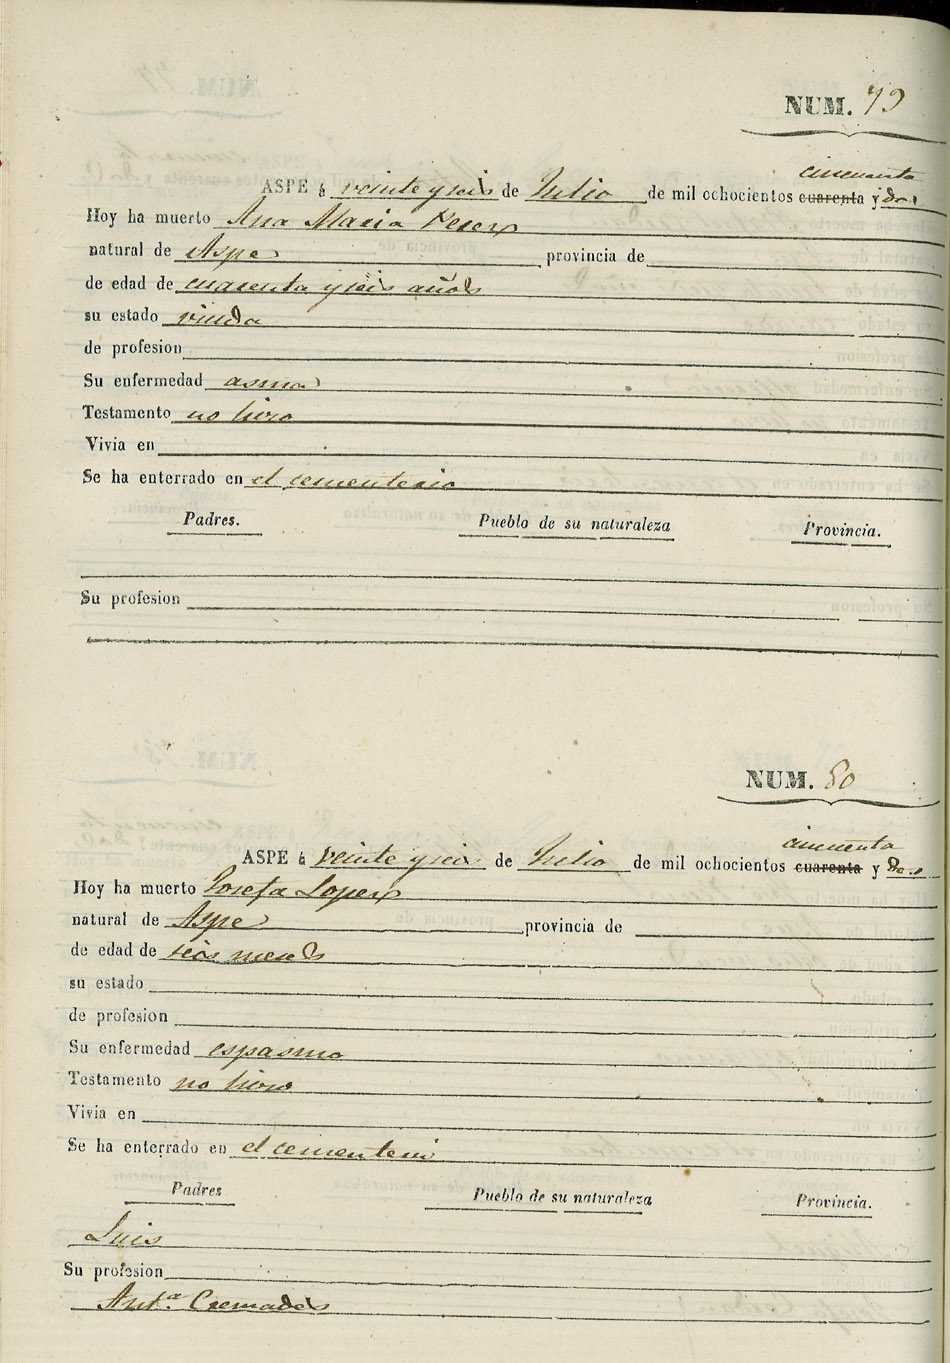 NUM. 79
cincuenta
ASPE á veinte y seis de Julio de mil ochocientos cuarenta y dos
Hoy ha muerto Ana Maria Perez
natural de Aspe provincia de
de edad de cuarenta y seis años
su estado viuda
de profesion
Su enfermedad asma
Testamento no hizo
Vivia en
Se ha enterrado en el cementerio
Padres. Pueblo de su naturaleza Provincia.
Su profesion
NUM. 80
cincuenta
ASPE á veinte y seis de Julio de mil ochocientos cuarenta y dos
Hoy ha muerto Josefa Lopez
natural de Aspe provincia de
de edad de seis meses
su estado
de profesion
Su enfermedad espasmo
Testamento no hizo
Vivia en
Se ha enterrado en el cementerio
Padres Pueblo de su naturaleza Provincia.
Luis
Su profesion
Ant.ª Cremades